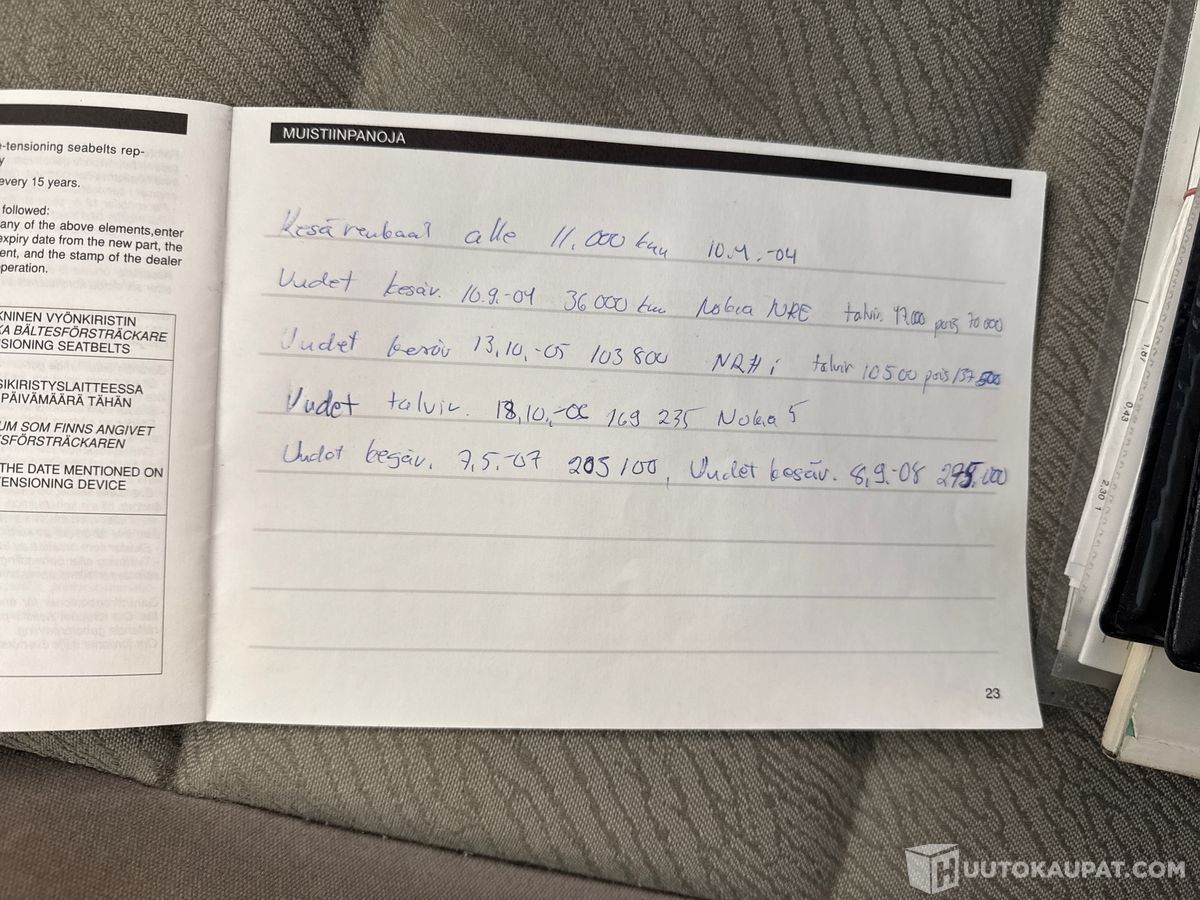 e-tensioning seabelts rep-
y
every 15 years.
followed:
any of the above elements,enter
expiry date from the new part, the
ent, and the stamp of the dealer
operation.
KNINEN VYÖNKIRISTIN
KA BÄLTESFÖRSTRÄCKARE
NSIONING SEATBELTS
SIKIRISTYSLAITTEESSA
PÄIVÄMÄÄRÄ TÄHÄN
UM SOM FINNS ANGIVET
TSFÖRSTRÄCKAREN
THE DATE MENTIONED ON
TENSIONING DEVICE
MUISTIINPANOJA
Kesärenkaat alle 11.000 km 10.4.-04
Uudet kesär. 10.9.-04 36000 km Nokia NRE talvir. 47.000 pois 70 000
Uudet kesär 13,10,-05 103 800 NRHi talvir 10500 pois 137 500
Uudet talvir. 18,10,-06 169 235 Nokia 5
Uudet kesär. 7,5.-07 205 100, Uudet kesär. 8,9.-08 275.000
23
1,87
0,43
2,30 1
HUUTOKAUPAT.COM